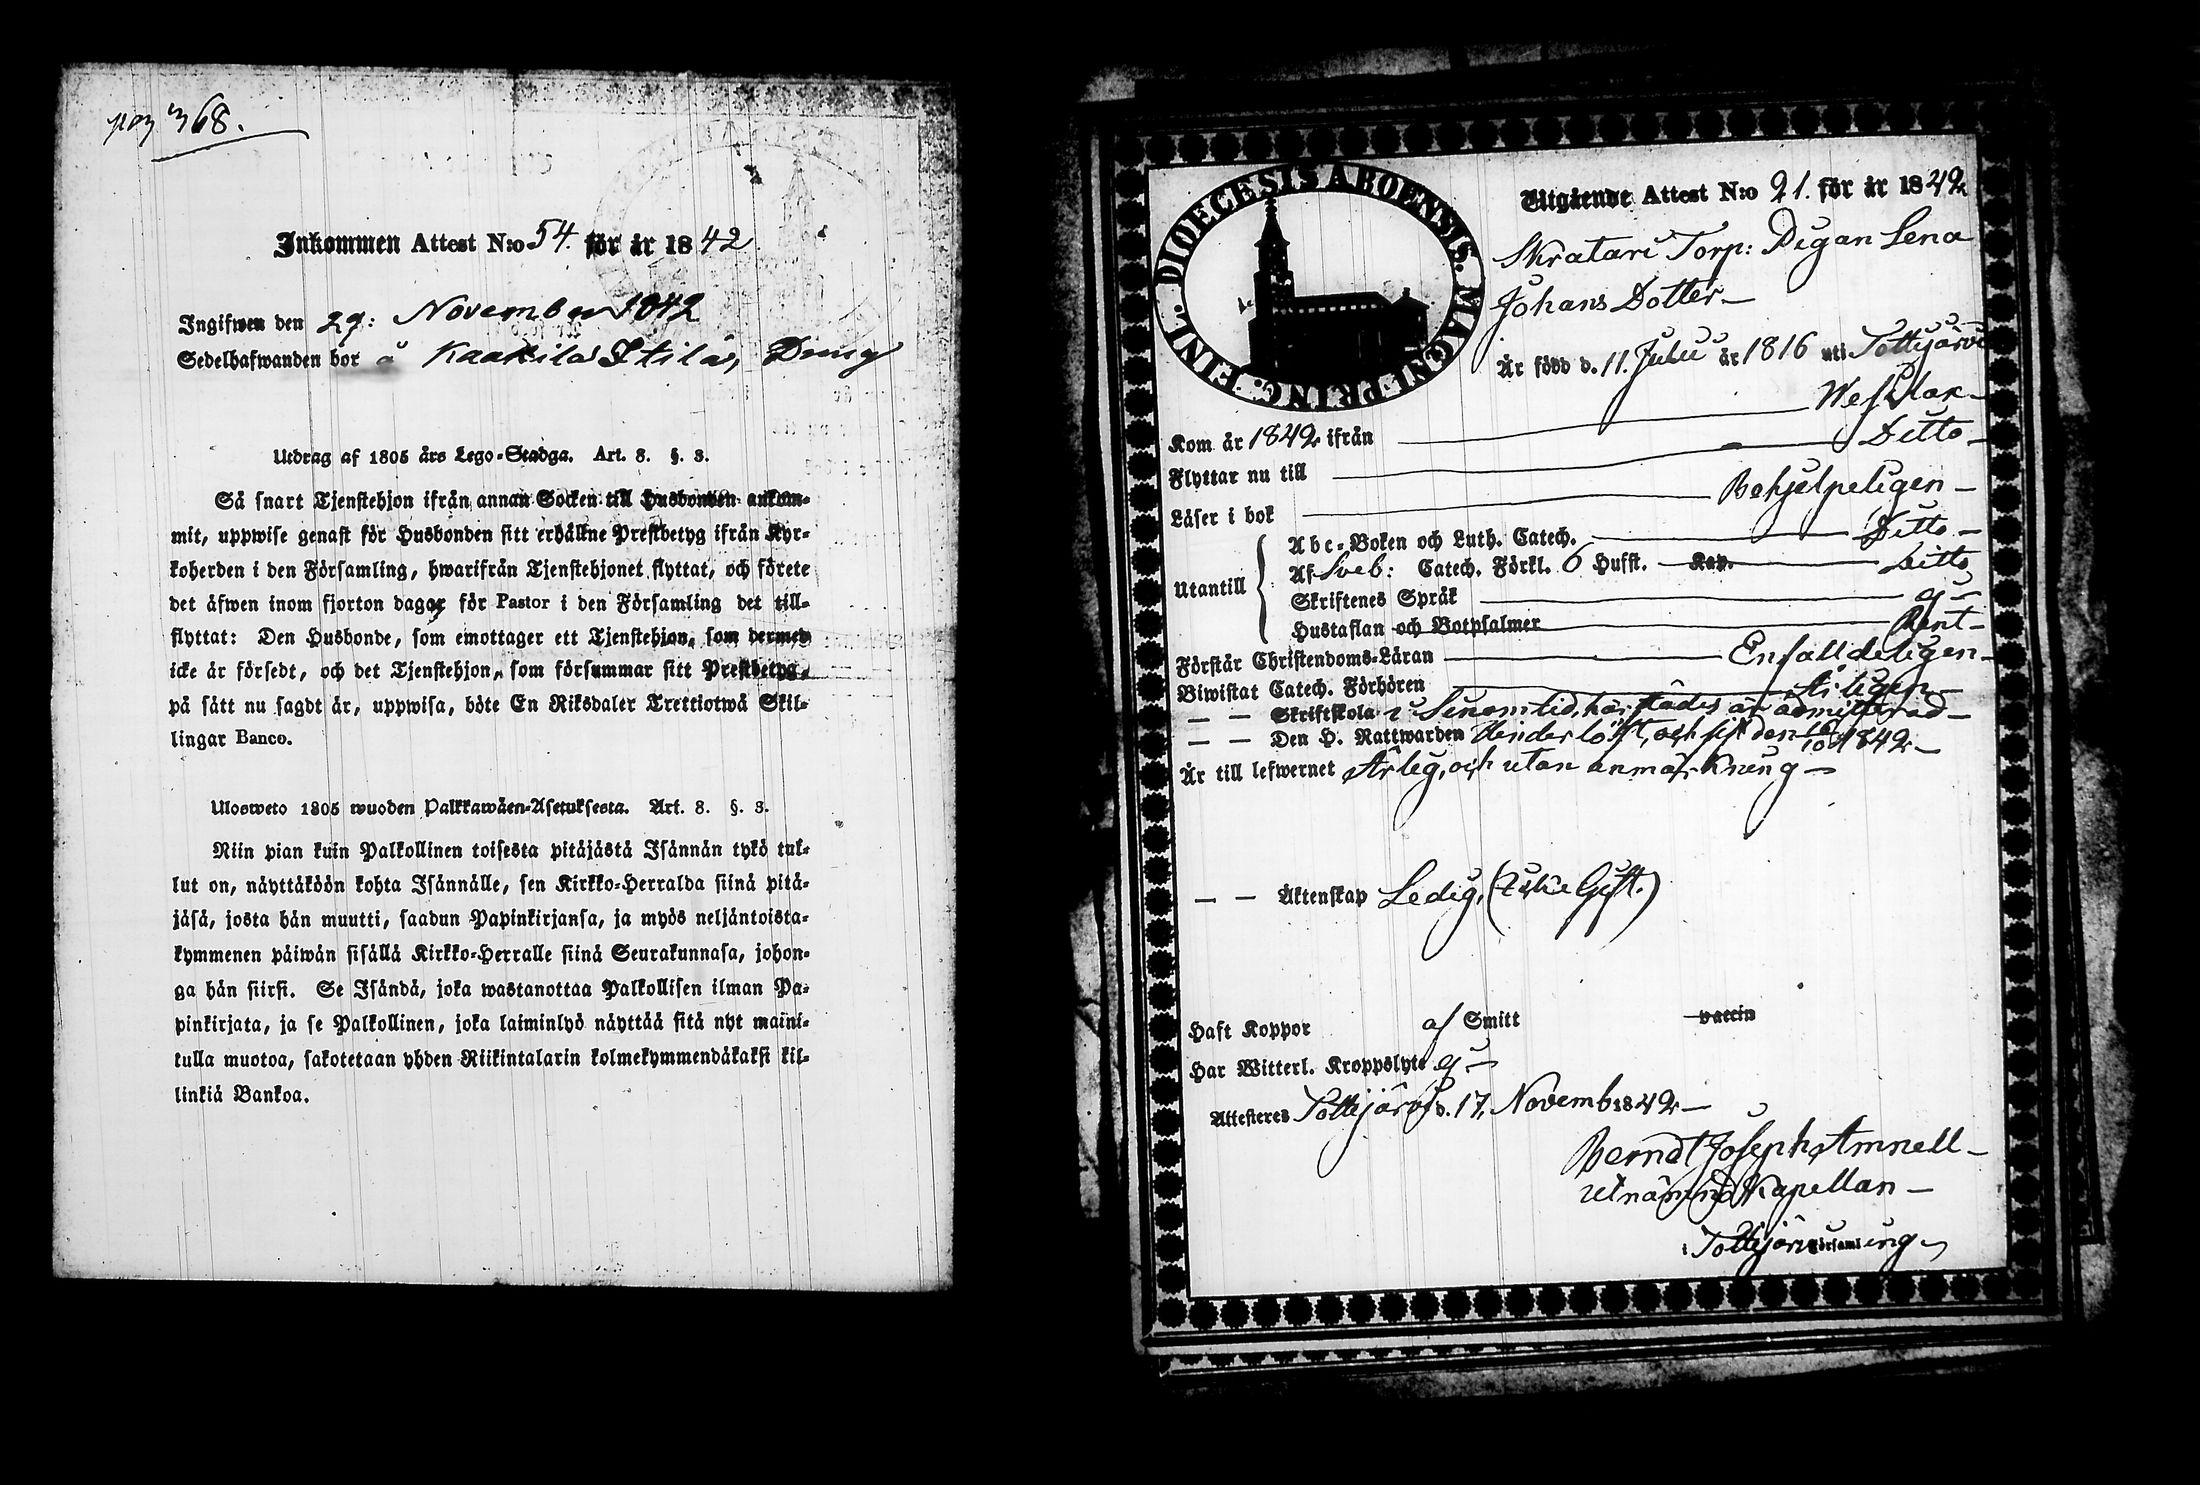 pag 368.
Inkommen Attest N:o 54. för år 1842
Ingifwen den 29: November 1842
Sedelhafwanden bor å Kaakila Itilä,
Utdrag af 1805 års Lego-Stadga. Art. 8. §. 3.
Så snart Tjenstehjon ifrån annan Socken till Husbonden ankom-
mit, uppwise genast för Husbonden sitt erhållne Prestbetyg ifrån Kyr-
koherden i den Församling, hwarifrån Tjenstehjonet flyttat, och förete
det äfwen inom fjorton dagar för Pastor i den Församling det till-
flyttat: Den Husbonde, som emottager ett Tjenstehjon, som dermed
icke är försedt, och det Tjenstehjon, som försummar sitt Prestbetyg,
på sätt nu sagdt är, uppwisa, böte En Riksdaler Trettiotwå Skil-
lingar Banco.
Ulosweto 1805 wuoden Palkkawäen-Asetuksesta. Art. 8. §. 3.
Niin pian kuin Palkollinen toisesta pitäjästä Isännän tykö tul-
lut on, näyttäköön kohta Isännälle, sen Kirkko-Herralda siinä pitä-
jäsä, josta hän muutti, saadun Papinkirjansa, ja myös neljäntoista-
kymmenen päiwän sisällä Kirkko-Herralle siinä Seurakunnasa, johon-
ga hän siirsi. Se Isändä, joka wastanottaa Palkollisen ilman Pa-
pinkirjata, ja se Palkollinen, joka laiminlyö näyttää sitä nyt maini-
tulla muotoa, sakotetaan yhden Riikintalarin kolmekymmendäkaksi kil-
linkiä Bankoa.
DIOECESIS ABOENSIS. MAGNI PRINC. FINL.
Utgående Attest N:o 21. för år 1842
Skratari Torp: Pigan Lena
Johans Dotter
Är född d. 11. Julii år 1816 uti Tottijärvi
Kom år 1842 ifrån Wesilax
Flyttar nu till Ditto
Läser i bok Behjelpeligen
Utantill
Abc-Boken och Luth. Catech. Ditto
Af Sveb: Catech. Förkl. 6 Hufst. Kap. Ditto
Skriftenes Språk ej
Hustaflan och Botpsalmer Rent
Förstår Christendoms-Läran Enfalldeligen
Biwistat Catech. Förhören Årligen
— — Skriftskola i Sinom tid, härstädes är admitterad
— — Den H. Nattwarden Hinderlöst, och sist den 16/10 1842
Är till lefwernet Ärlig, och utan anmärkning
— — Äktenskap Ledig, (Icke Gift.)
Haft Koppor af Smitt vaccin
Har Witterl. Kroppslyte ej
Attesteres Tottijärvi d. 17. Novemb 1842
Berndt Joseph Amnell
utnämnd Kapellan
i Tottijärvi Församling